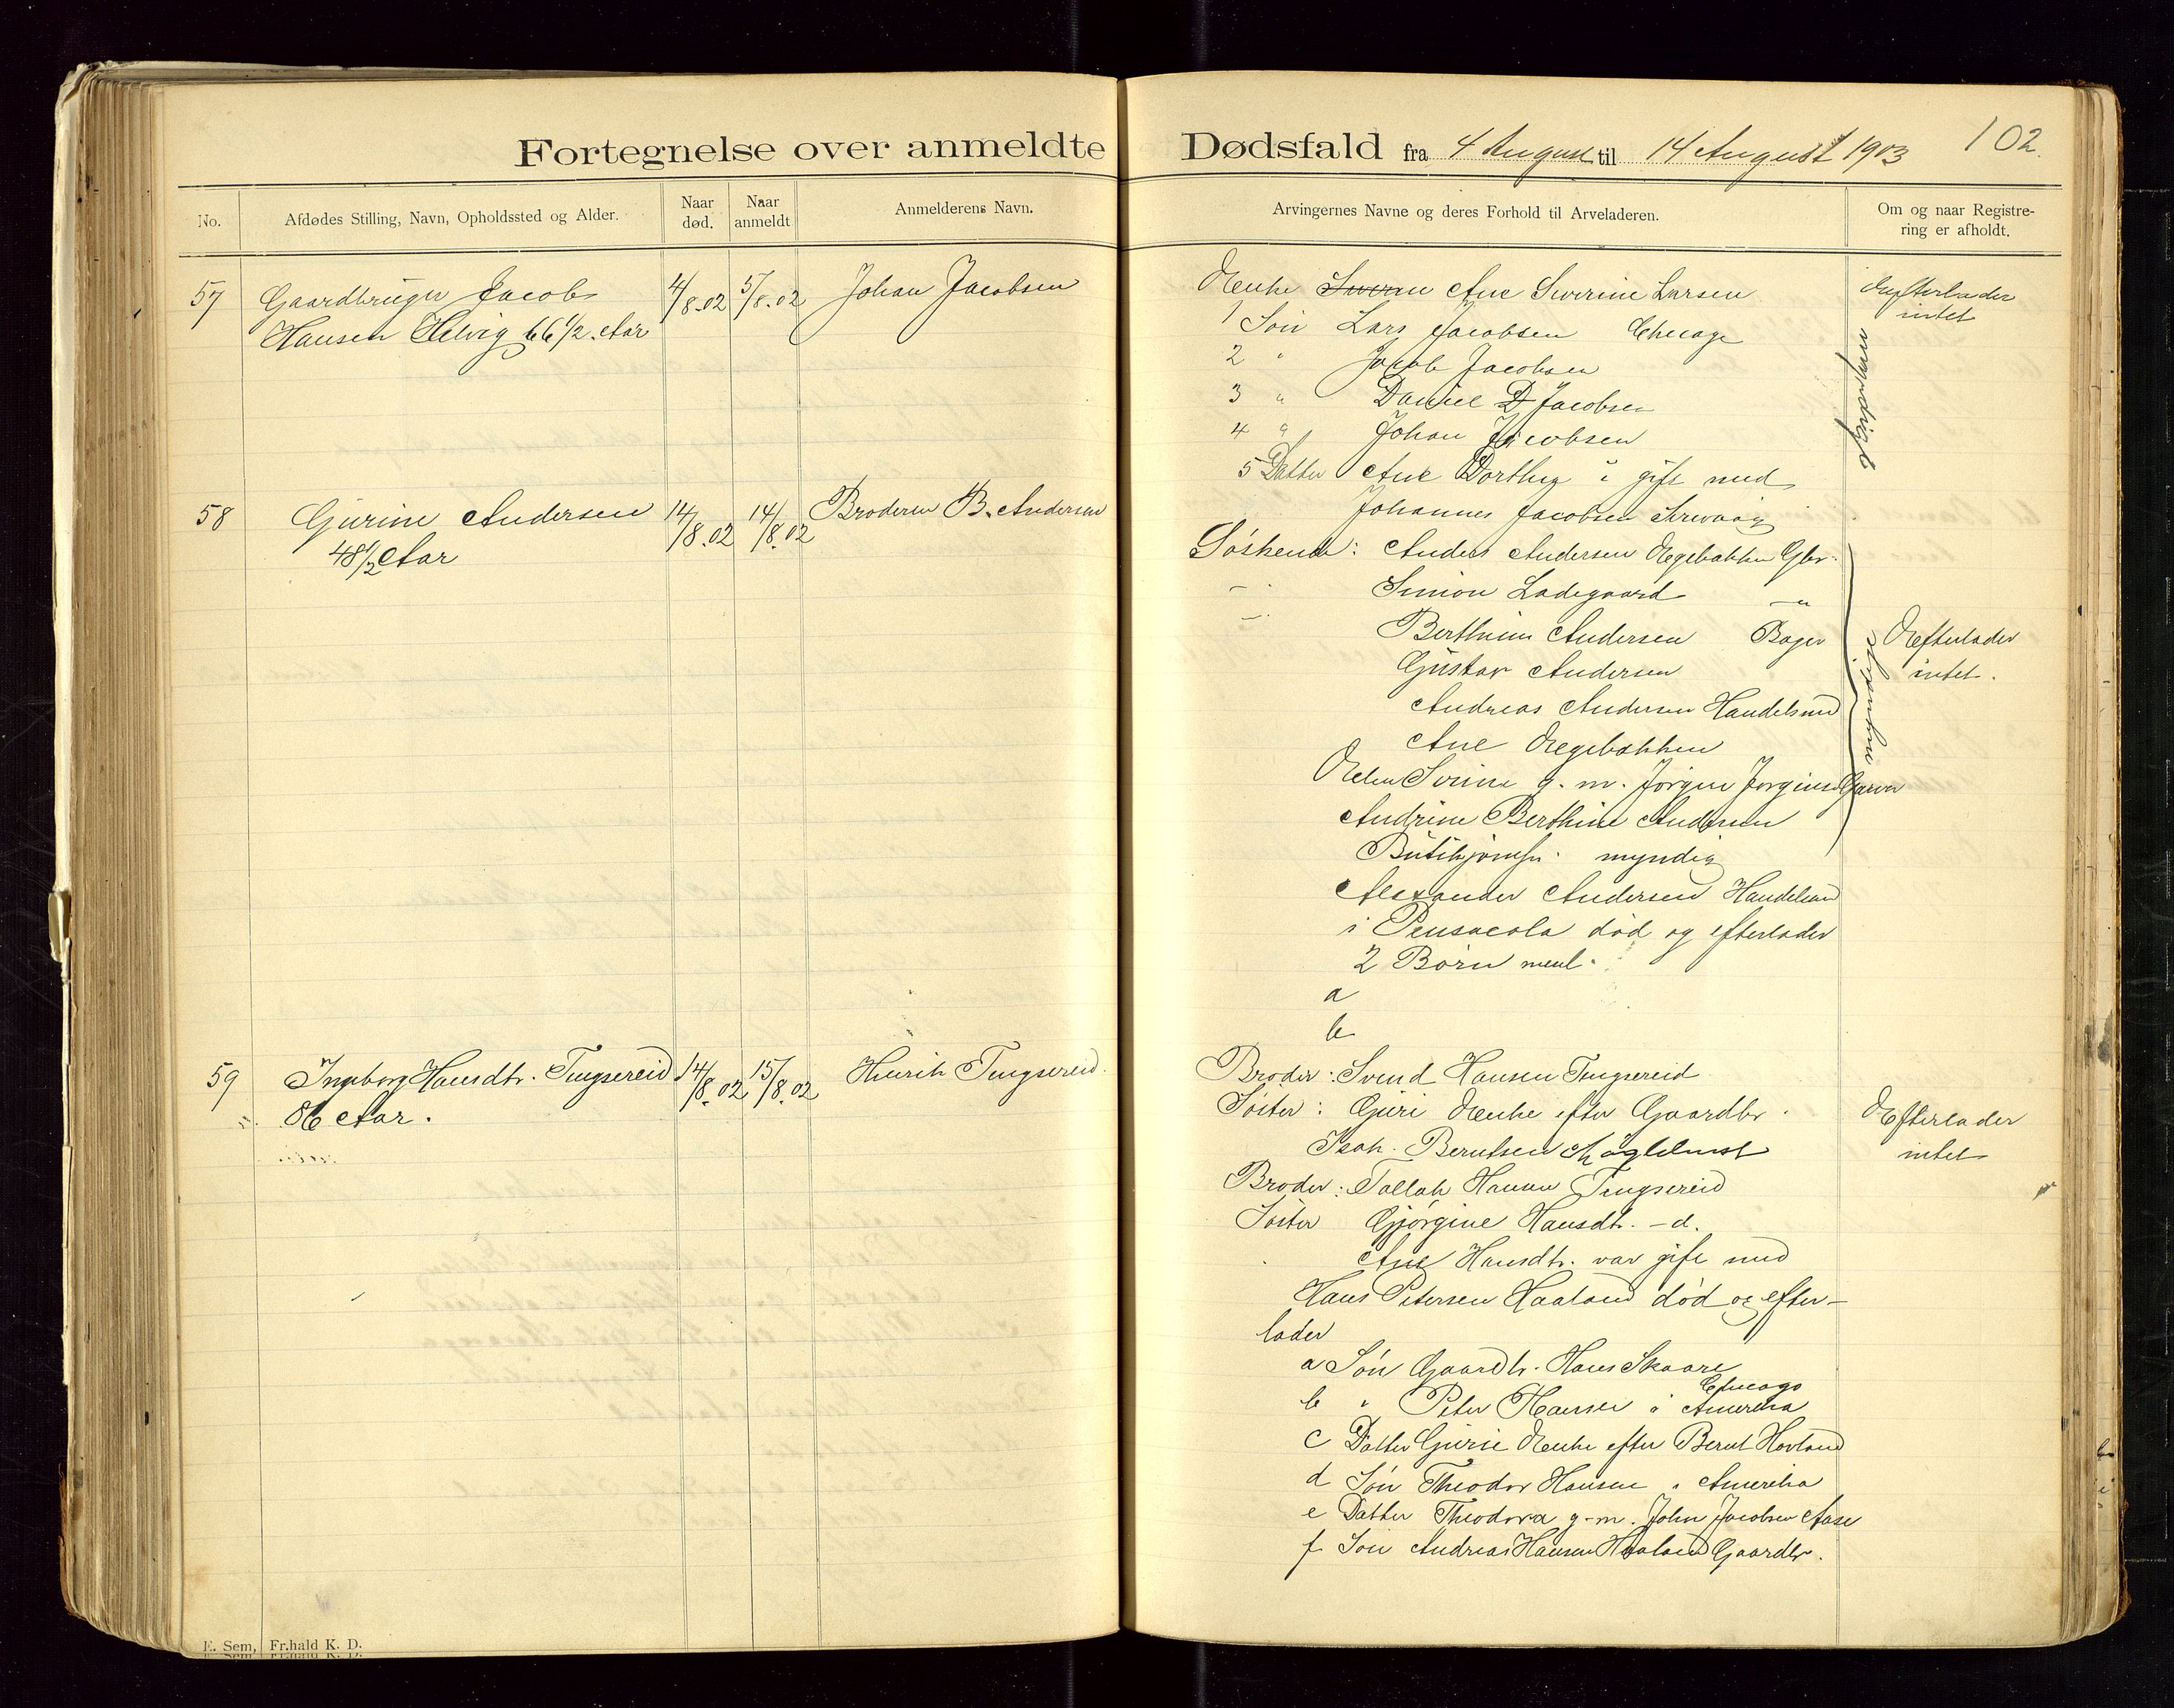 Fortegnelse over anmeldte Dødsfald fra 4 August til 14 August 1903 102.
No.
Afdødes Stilling, Navn, Opholdssted og Alder.
Naar død.
Naar anmeldt
Anmelderens Navn.
Arvingernes Navne og deres Forhold til Arveladeren.
Om og naar Registrering er afholdt.
57 Gaardbruger Jacob 4/8.02 5/8.02 Johan Jacobsen
Hansen Helvig 66 1/2 Aar
Enke Ane Severine Larsen
1 Søn Lars Jacobsen Chicago
2 " Jacob Jacobsen
3 " Daniel D Jacobsen
4 " Johan Jacobsen
5 Datter Ane Dorthea i gift med
Johannes Jacobsen
Efterlader
intet
myndige
58 Gurine Andersen 14/8.02 14/8.02 Broderen B. Andersen
48 1/2 Aar
Søskende: Anders Andersen Egebakken Gbr.
- Simon Ladegaard - "
- Berthinius Andersen Bager
Gustav Andersen
Andreas Andersen Handelsmd
Ane Egebakken
Elen Serine g. m. Jørgen Jørgensen Garver
Andrine Berthine Andersen
myndig
Alexander Andersen Handelsmd
i Pensacola død og efterlader
2 Børn
a
b
Efterlader
intet.
59 Ingeborg Hansdtr. Tengsereid 14/8.02 15/8.02 Henrik Tengsereid
86 Aar.
Broder: Svend Hansen Tengsereid
Søster: Guri Enke efter Gaardbr.
Isak Berntsen
Broder: Tallak Hansen Tengsereid
Søster Gjørgine Hansdt. - d.
Ane Hansdtr. var gift med
Hans Petersen Haaland død og efter-
lader
a Søn Gaardbr. Hans Skaare
Chicago
b " Peter Hansen i Amerika
c Datter Gurie Enke efter Bernt Hovland
d Søn Theodor Hansen i Amerika
e Datter Theodora g. m. John Jacobsen Aase
f Søn Andreas Hansen Haaland Gaardbr.
Efterlader
intet
E. Sem, Fr.hald K. D.